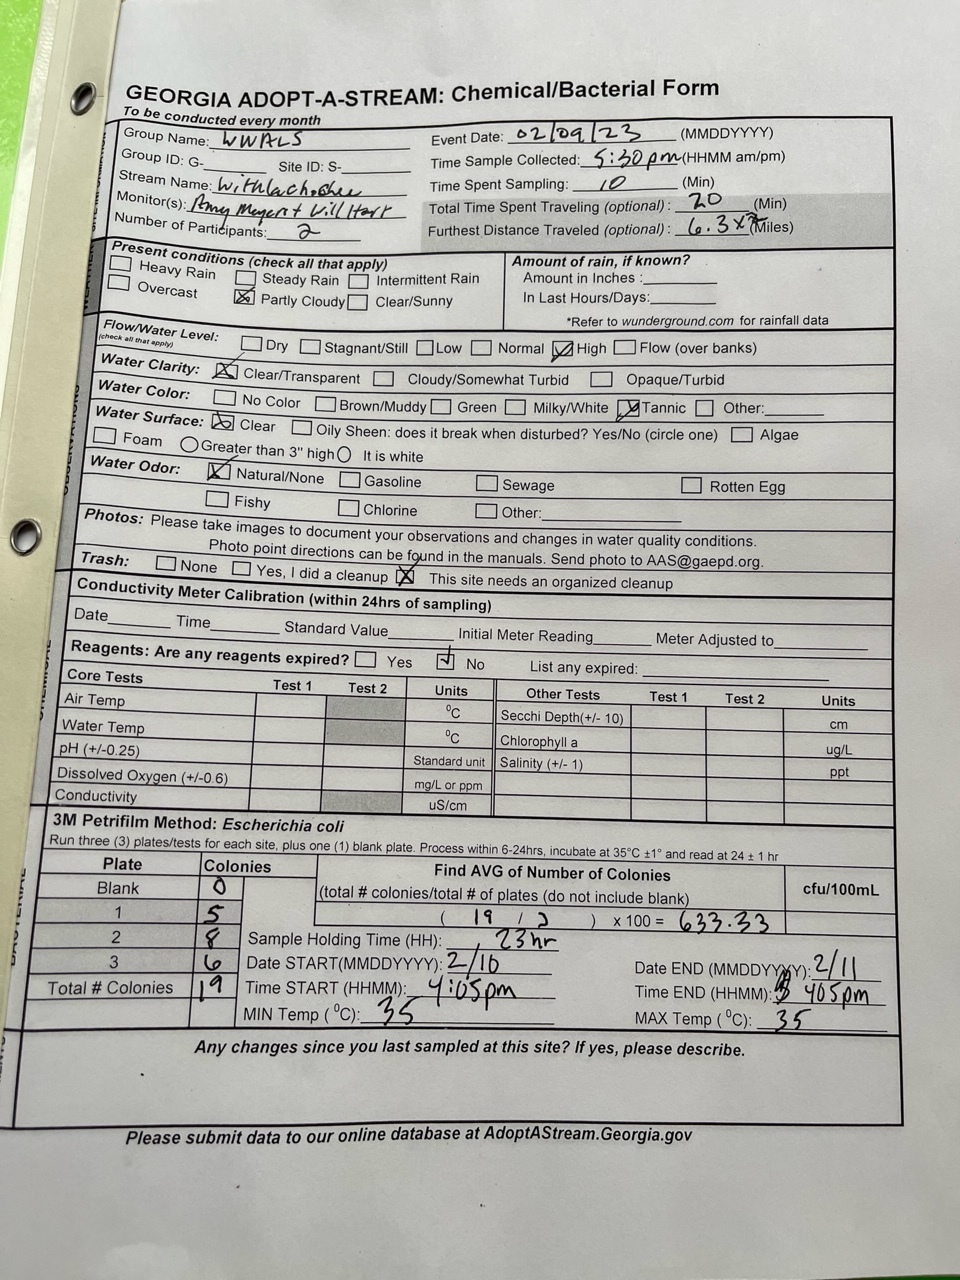 GEORGIA ADOPT-A-STREAM: Chemical/Bacterial Form
To be conducted every month
Group Name: WWALS Event Date: 02/09/23 (MMDDYYYY)
Group ID: G- Site ID: S- Time Sample Collected: 5:30pm (HHMM am/pm)
Stream Name: Withlachochee Time Spent Sampling: 10 (Min)
Monitor(s): Amy + Will Hart Total Time Spent Traveling (optional): 20 (Min)
Number of Participants: 2 Furthest Distance Traveled (optional): 6.3 x 2 (Miles)
Present conditions (check all that apply) Amount of rain, if known?
Heavy Rain Steady Rain Intermittent Rain Amount in Inches :
Overcast Partly Cloudy Clear/Sunny In Last Hours/Days:
*Refer to wunderground.com for rainfall data
Flow/Water Level: Dry Stagnant/Still Low Normal High Flow (over banks)
(check all that apply)
Water Clarity: Clear/Transparent Cloudy/Somewhat Turbid Opaque/Turbid
Water Color: No Color Brown/Muddy Green Milky/White Tannic Other:
Water Surface: Clear Oily Sheen: does it break when disturbed? Yes/No (circle one) Algae
Foam Greater than 3" high It is white
Water Odor: Natural/None Gasoline Sewage Rotten Egg
Fishy Chlorine Other:
Photos: Please take images to document your observations and changes in water quality conditions.
Photo point directions can be found in the manuals. Send photo to AAS@gaepd.org.
Trash: None Yes, I did a cleanup This site needs an organized cleanup
Conductivity Meter Calibration (within 24hrs of sampling)
Date Time Standard Value Initial Meter Reading Meter Adjusted to
Reagents: Are any reagents expired? Yes No List any expired:
Core Tests Test 1 Test 2 Units Other Tests Test 1 Test 2 Units
Air Temp ºC Secchi Depth(+/- 10) cm
Water Temp ºC Chlorophyll a ug/L
pH (+/-0.25) Standard unit Salinity (+/- 1) ppt
Dissolved Oxygen (+/-0.6) mg/L or ppm
Conductivity uS/cm
3M Petrifilm Method: Escherichia coli
Run three (3) plates/tests for each site, plus one (1) blank plate. Process within 6-24hrs, incubate at 35°C ±1° and read at 24 ± 1 hr
Plate Colonies Find AVG of Number of Colonies cfu/100mL
Blank 0 (total # colonies/total # of plates (do not include blank)
1 5 ( 19 / 3 ) x 100 = 633.33
2 8 Sample Holding Time (HH): 23hr
3 6 Date START(MMDDYYYY): 2/10 Date END (MMDDYYYY): 2/11
Total # Colonies 19 Time START (HHMM): 4:05pm Time END (HHMM): 405pm
MIN Temp ( ºC): 35 MAX Temp ( ºC): 35
Any changes since you last sampled at this site? If yes, please describe.
Please submit data to our online database at AdoptAStream.Georgia.gov